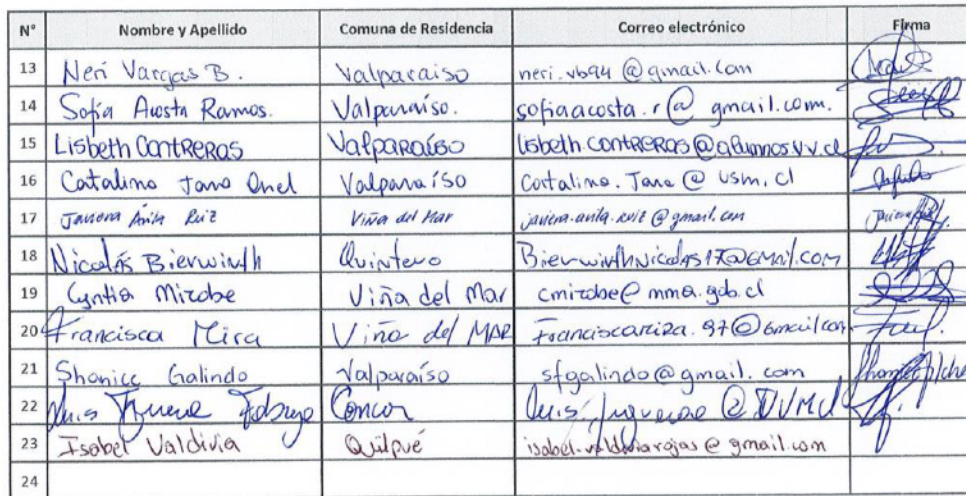 N° Nombre y Apellido Comuna de Residencia Correo electrónico Firma
13 Neri Vargas B. Valparaiso neri.vb94@gmail.com
14 Sofía Acosta Ramos. Valparaíso. sofiaacosta.r@gmail.com.
15 Lisbeth CONTRERAS Valparaíso lisbeth.contreras@alumnos.uv.cl
16 Catalina Jana Valparaíso Catalina.Jana@usm.cl
17 Javiera Ávila Ruiz Viña del Mar javiera.avila.ruiz@gmail.com
18 Nicolás Bierwirth Quintero BierwirthNicolas17@GMail.com
19 Cyntia Mizobe Viña del Mar cmizobe@mma.gob.cl
20 Francisca Viña del MAR
21 Shanice Galindo Valparaíso sfgalindo@gmail.com
22 Luis
23 Isabel Valdivia Quilpué isabel.valdiviarojas@gmail.com
24